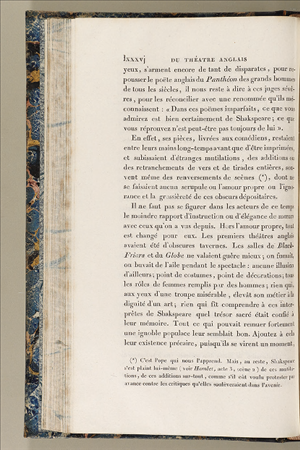 lxxxvj DU THÉATRE ANGLAIS
yeux, s'arment encore de tant de disparates, pour re
pousser le poëte anglais du Panthéon des grands hommes
de tous les siècles, il nous reste à dire à ces juges sévè-
res, pour les réconcilier avec une renommée qu'ils mé-
connaissent : « Dans ces poëmes imparfaits, ce que vous
admirez est bien certainement de Shakspeare; ce que
vous réprouvez n'est peut-être pas toujours de lui ».
En effet, ses pièces, livrées aux comédiens, restaient
entre leurs mains long-temps avant que d'être imprimées,
et subissaient d'étranges mutilations, des additions ou
des retranchements de vers et de tirades entières, sou-
vent même des renversements de scènes (*), dont ne
se faisaient aucun scrupule ou l'amour propre ou l'igno-
rance et la grossièreté de ces obscurs dépositaires.
Il ne faut pas se figurer dans les acteurs de ce temps
le moindre rapport d'instruction ou d'élégance de mœurs
avec ceux qu'on a vus depuis. Hors l'amour propre, tout
est changé pour eux. Les premiers théâtres anglais
avaient été d'obscures tavernes. Les salles de Black-
Friars et du Globe ne valaient guère mieux; on fumait,
on buvait de l'aile pendant le spectacle : aucune illusion
d'ailleurs; point de costumes, point de décorations; tous
les rôles de femmes remplis par des hommes; rien qui,
aux yeux d'une troupe misérable, élevât son métier à la
dignité d'un art; rien qui fît comprendre à ces inter-
prètes de Shakspeare quel trésor sacré était confié à
leur mémoire. Tout ce qui pouvait remuer fortement
une ignoble populace leur semblait bon. Ajoutez à cela
leur existence précaire, puisqu'ils se virent un moment
(*) C'est Pope qui nous l'apprend. Mais, au reste, Shakspeare
s'est plaint lui-même (voir Hamlet, acte 3, scène 2) de ces mutila-
tions, de ces additions sur-tout, comme s'il eût voulu protester par
avance contre les critiques qu'elles soulèveraient dans l'avenir.